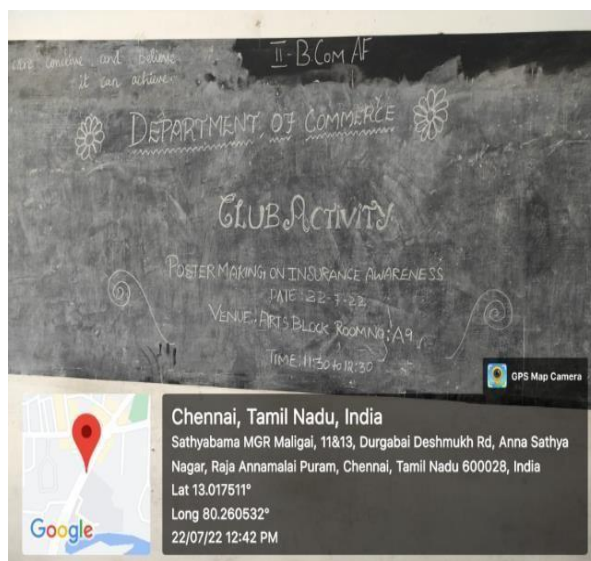 can conceive and believe
it can achieve.
II-B.COM AF
DEPARTMENT OF COMMERCE
CLUB ACTIVITY
POSTER MAKING ON INSURANCE AWARENESS
DATE: 22-7-22
VENUE: ARTS BLOCK ROOM NO: A9
TIME: 11:30 to 12:30
GPS Map Camera
Chennai, Tamil Nadu, India
Sathyabama MGR Maligai, 11&13, Durgabai Deshmukh Rd, Anna Sathya
Nagar, Raja Annamalai Puram, Chennai, Tamil Nadu 600028, India
Lat 13.017511°
Long 80.260532°
22/07/22 12:42 PM
Google